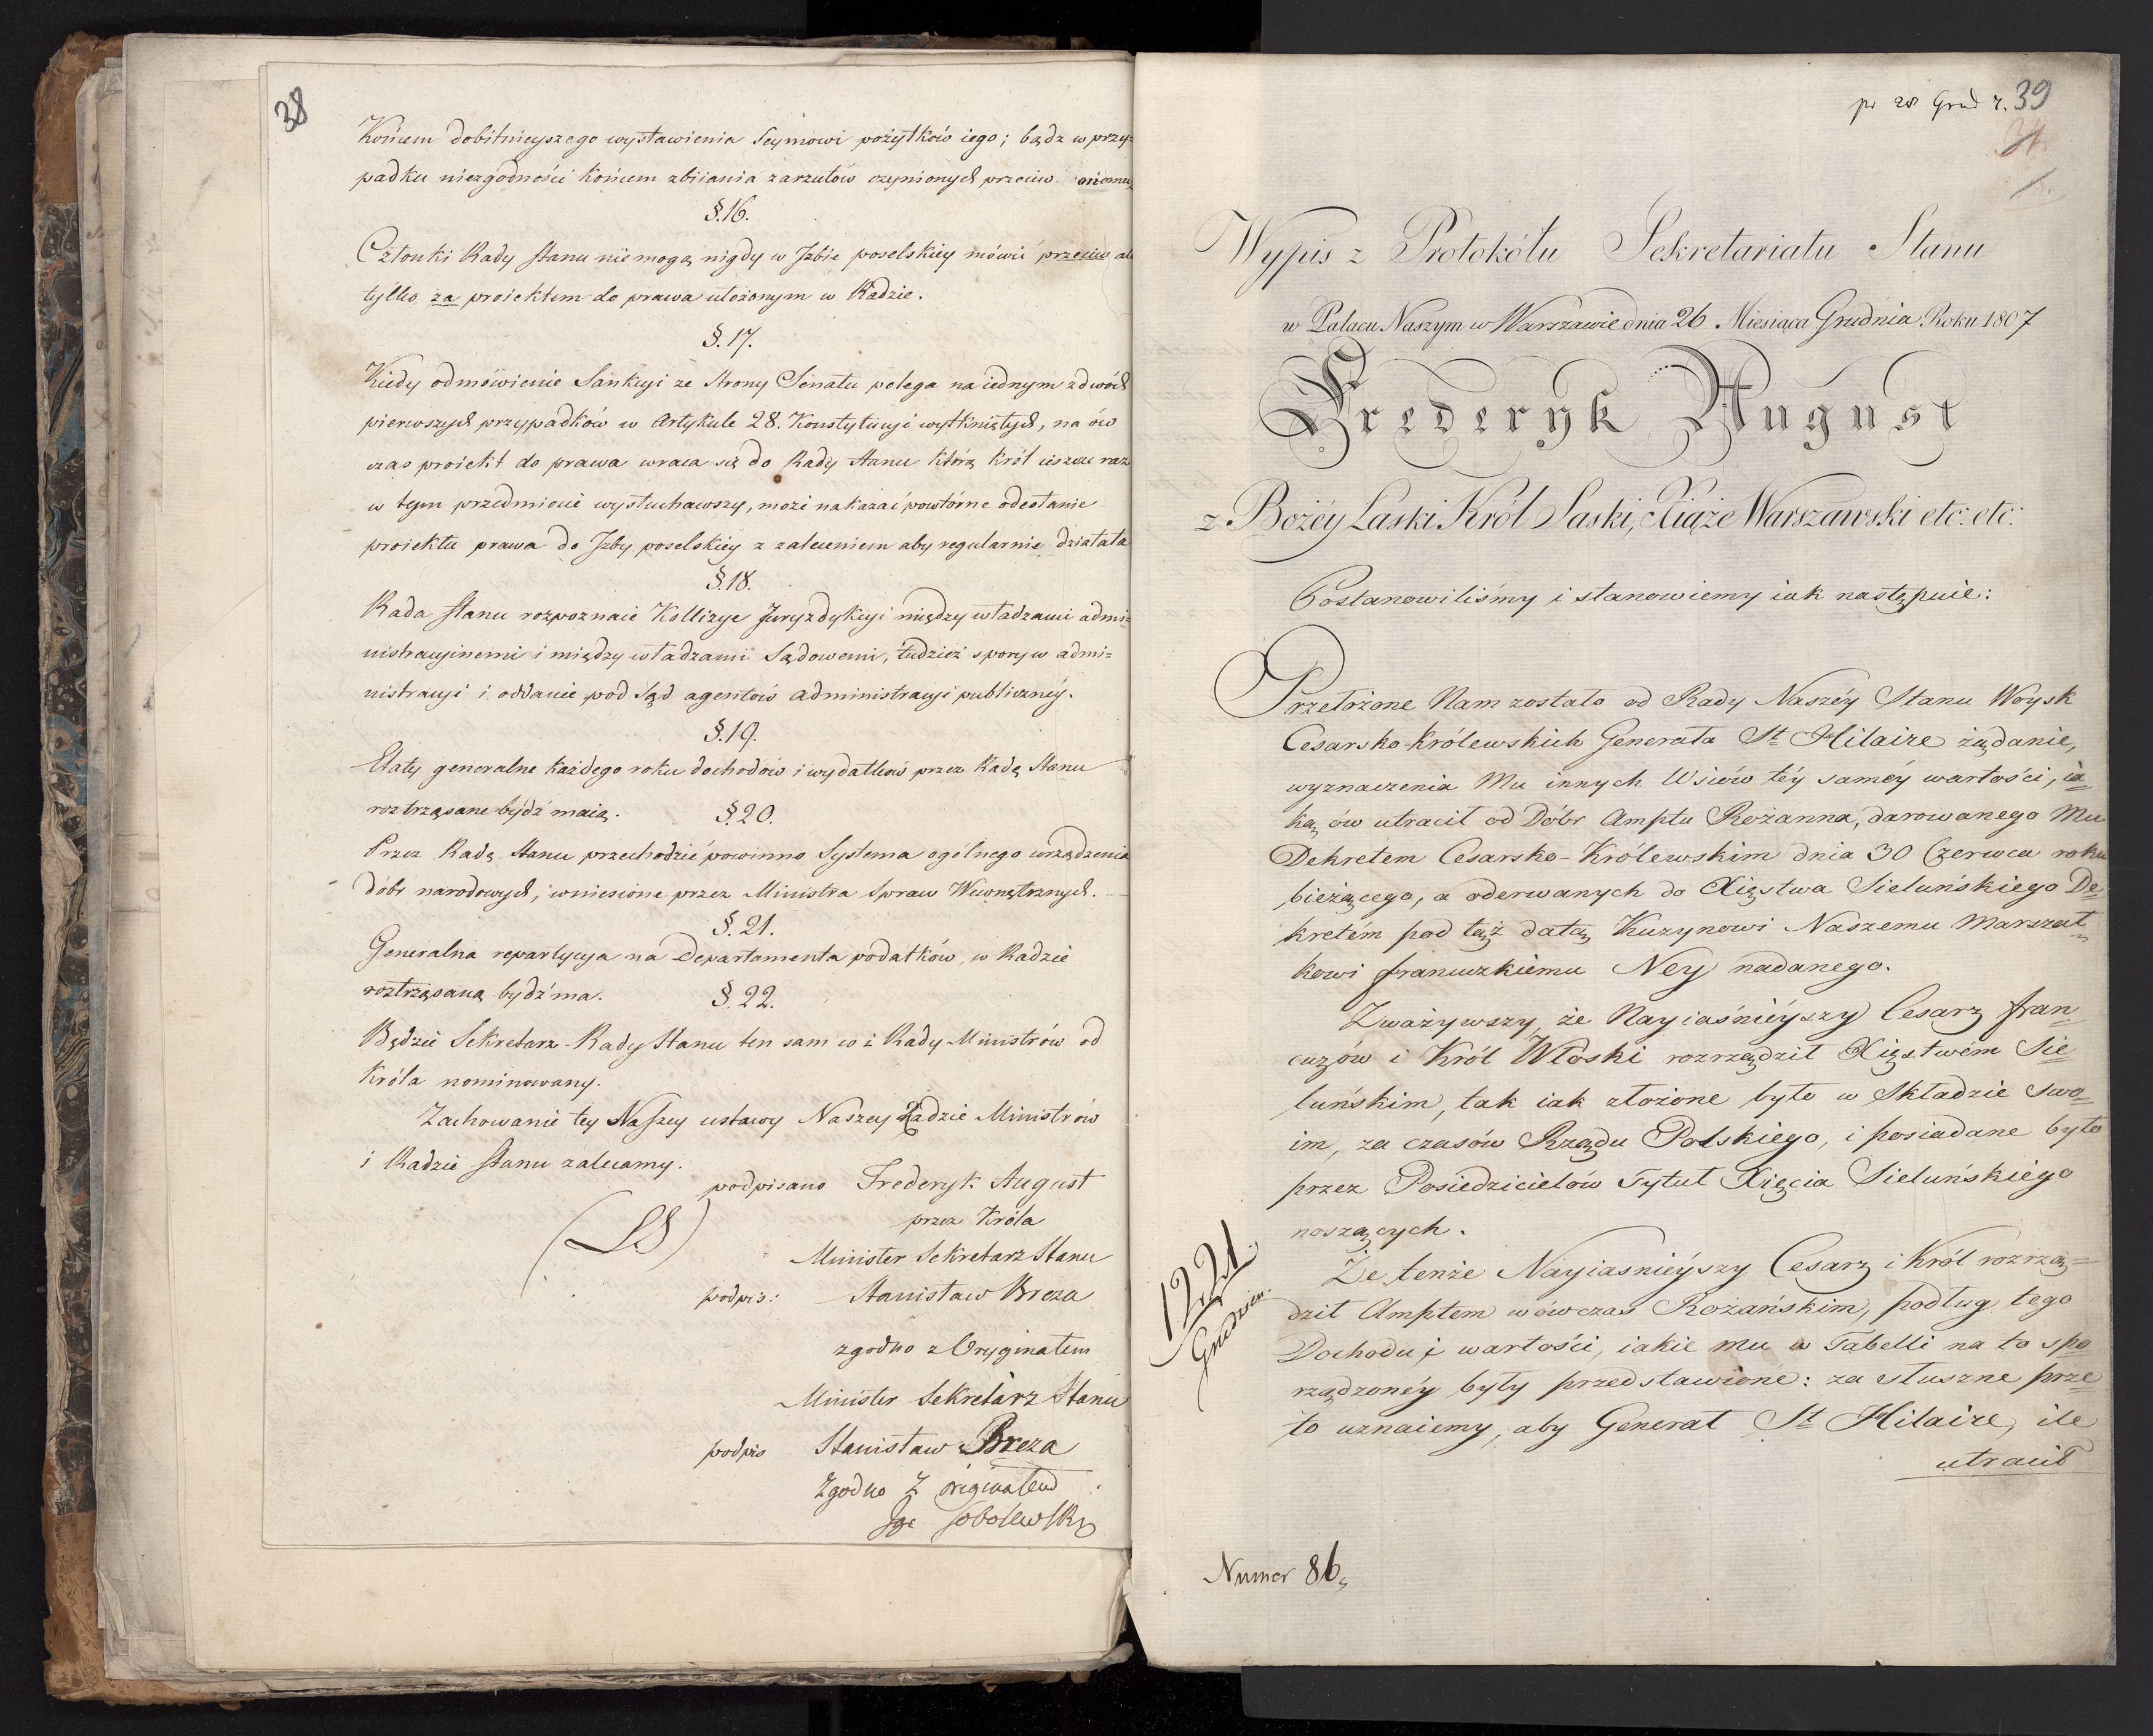 38
Końcem dobitnieyszego wystawienia Seymowi pożytków iego; bądz w przy=
padku niezgodności końcem zbiiania zarzutów czynionych przeciw niemu,
§. 16.
Członki Rady Stanu nie mogą nigdy w Izbie poselskiey mówić przeciw, al
tylko za proiektem do prawa ułożonym w Radzie.
§. 17.
Kiedy odmówienie Sankcyi ze Strony Senatu polega na iednym z dwóch
pierwszych przypadków w Artykule 28. Konstytucyi wytkniętych, na ów
czas proiekt do prawa wraca się do Rady Stanu którą Król ieszcze raz
w tym przedmiocie wysłuchawszy, może nakazać powtórne odesłanie
proiektu prawa do Izby poselskiey z zaleceniem aby regularnie działała
§. 18.
Rada Stanu rozpoznaie Kollizye Juryzdykcyi między władzami admi=
nistracyinemi i między władzami Sądowemi, tudzież spory w admi=
nistracyi i oddanie pod Sąd agentów administracyi publicznéy.
§. 19.
Etaty generalne każdego roku dochodów i wydatków przez Radę Stanu
roztrząsane bydź maią. §. 20.
Przez Radę Stanu przechodzić powinno Systema ogólnego urządzenia
dóbr narodowych, wniesione przez Ministra Spraw Wewnętrznych.
§. 21.
Generalna repartycya na Departamenta podatków, w Radzie
roztrząsaną bydź ma. §. 22.
Będzie Sekretarz Rady Stanu ten sam co i Rady Ministrów od
Króla nominowany.
Zachowanie tey Naszey ustawy Naszey Radzie Ministrów
i Radzie Stanu zalecamy.
podpisano Frederyk August
(LS) przez Króla
Minister Sekretarz Stanu
podpis: Stanisław Breza
zgodno z Oryginałem
Minister Sekretarz Stanu
podpis Stanisław Breza
Zgodno z originałem
Ign Sobolewski
pr 28 Grud r. 39
34.
1.
Wypis z Protokółu Sekretariatu Stanu
w Pałacu Naszym w Warszawie dnia 26 Miesiąca Grudnia Roku 1807
Frederyk August
z Bożéy Łaski Król Saski, Xiąże Warszawski etc: etc:
Postanowiliśmy i stanowiemy iak następuie:
Przełożone Nam zostało od Rady Naszéy Stanu Woysk
Cesarsko-Królewskich Generała St Hilaire żądanie,
wyznaczenia Mu innych Wsiów téy saméy wartości, ia
ką ów utracił od Dóbr Amptu Rożanna, darowanego Mu
Dekretem Cesarsko-Królewskim dnia 30 Czerwca roku
bieżącego, a oderwanych do Xięstwa Sieluńskiego De
kretém pod tąż datą Kuzynowi Naszemu Marszał
kowi francuzkiemu Ney nadanego.
Zważywszy, że Nayiaśnieyszy Cesarz fran
cuzów i Król Włoski rozrządził Xięstwém Sie
luńskim, tak iak złożone było w Składzie swo
im, za czasów Rządu Polskiego, i posiadane było
przez Posiedzicielów Tytuł Xięcia Sieluńskiego
noszących.
Że tenże Nayiaśnieyszy Cesarz i Król rozrzą=
dził Amptem wówczas Rożańskim, podług tego
Dochodu i wartości, iakie mu w Tabelli na to spo
rządzonéy były przedstawione: za słuszne prze
to uznaiemy, aby Generał St Hilaire, ile
utracił
1221.
Grudzien.
Numer 86,